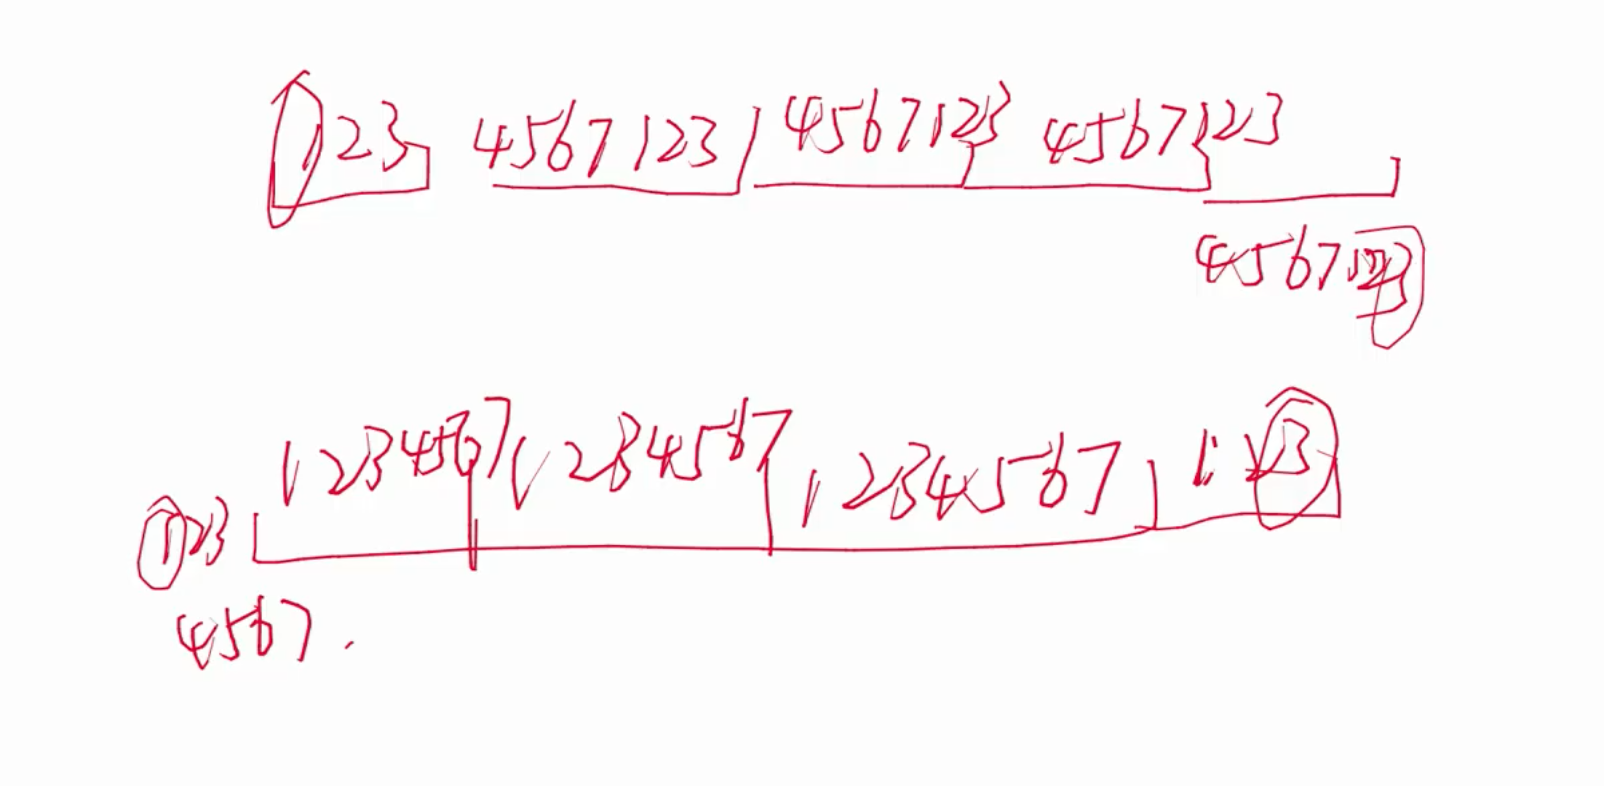 123 4567123 4567123 4567123
4567123
1234567 1234567 1234567 123
123
4567.